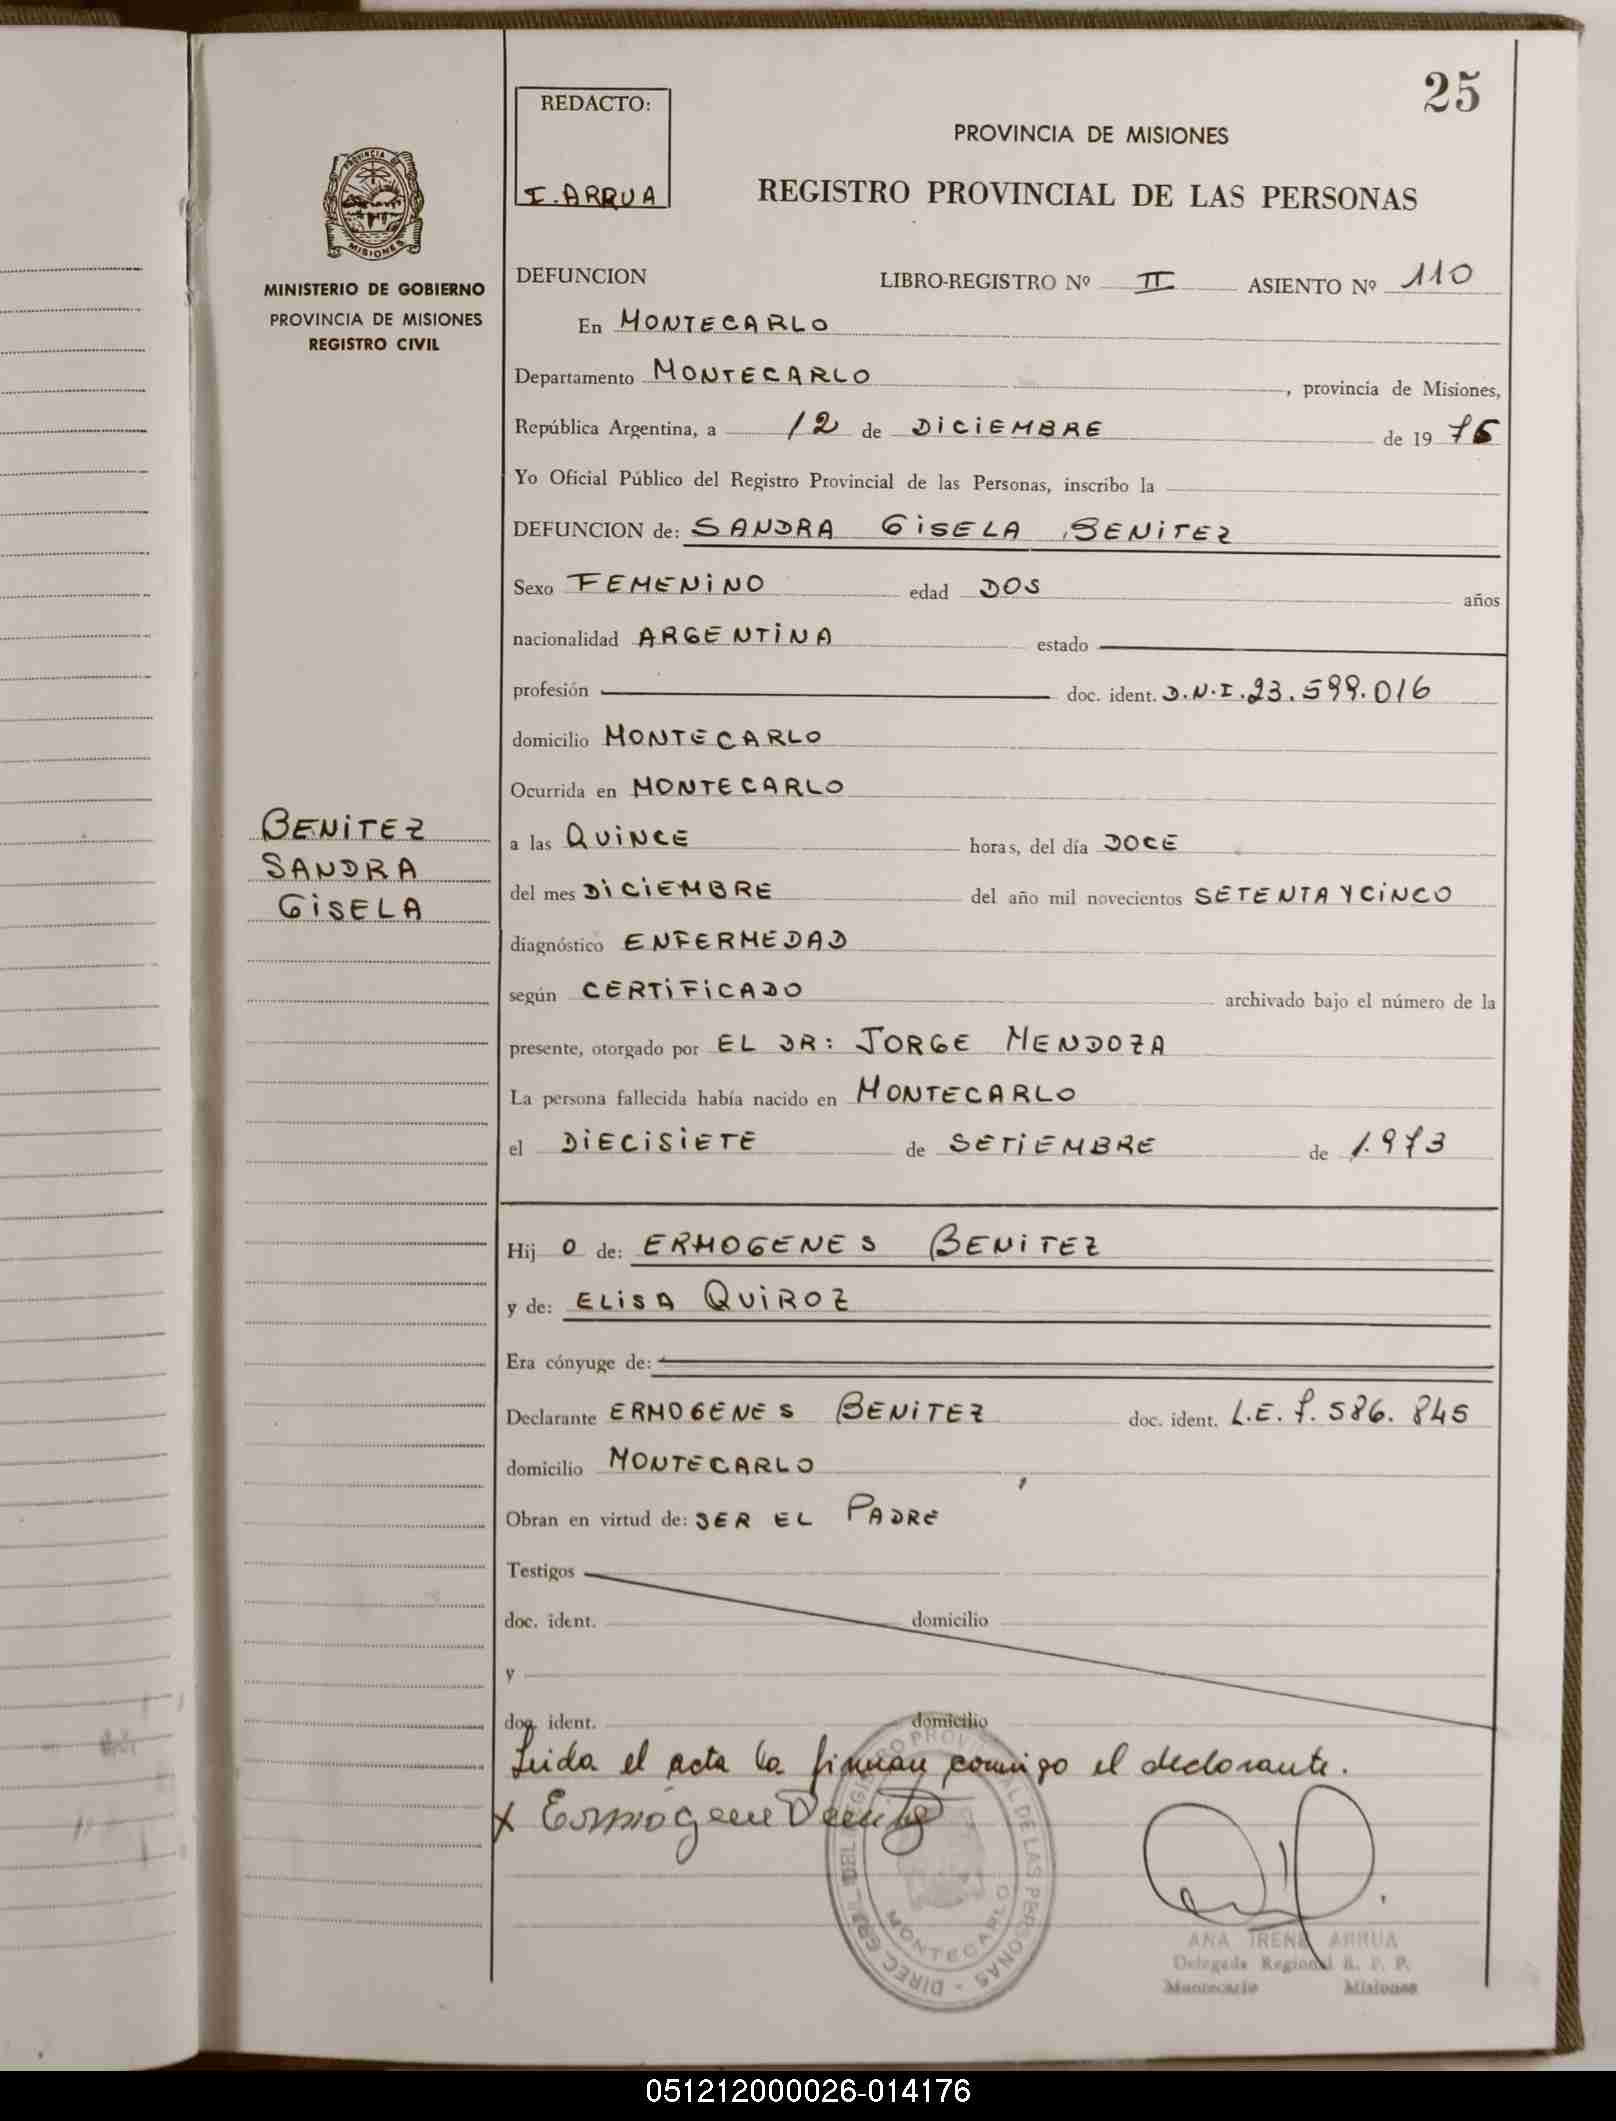 25
REDACTO:
I. ARRUA
PROVINCIA DE MISIONES
REGISTRO PROVINCIAL DE LAS PERSONAS
PROVINCIA DE
MISIONES
MINISTERIO DE GOBIERNO
PROVINCIA DE MISIONES
REGISTRO CIVIL
DEFUNCION LIBRO-REGISTRO Nº II ASIENTO Nº 110
En MONTECARLO
Departamento MONTECARLO, provincia de Misiones,
República Argentina, a 12 de DICIEMBRE de 1975
Yo Oficial Público del Registro Provincial de las Personas, inscribo la
DEFUNCION de: SANDRA GISELA BENITEZ
Sexo FEMENINO edad DOS años
nacionalidad ARGENTINA estado
profesión doc. ident. D.N.I. 23.599.016
domicilio MONTECARLO
Ocurrida en MONTECARLO
BENITEZ
SANDRA
GISELA
a las QUINCE horas, del día DOCE
del mes DICIEMBRE del año mil novecientos SETENTA Y CINCO
diagnóstico ENFERMEDAD
según CERTIFICADO archivado bajo el número de la
presente, otorgado por EL DR: JORGE MENDOZA
La persona fallecida había nacido en MONTECARLO
el DIECISIETE de SETIEMBRE de 1.973
Hij O de: ERMOGENES BENITEZ
y de: ELISA QUIROZ
Era cónyuge de:
Declarante ERMOGENES BENITEZ doc. ident. L.E. 7.586.845
domicilio MONTECARLO
Obran en virtud de: SER EL PADRE
Testigos
doc. ident. domicilio
y
doc. ident. domicilio
Leida el acta la firman conmigo el declarante.
X Ermógene
DIREC. GRAL. DEL REGISTRO PROVINCIAL DE LAS PERSONAS
MONTECARLO
ANA IRENE ARRUA
Delegada Regional R. P. P.
Montecarlo Misiones
051212000026-014176